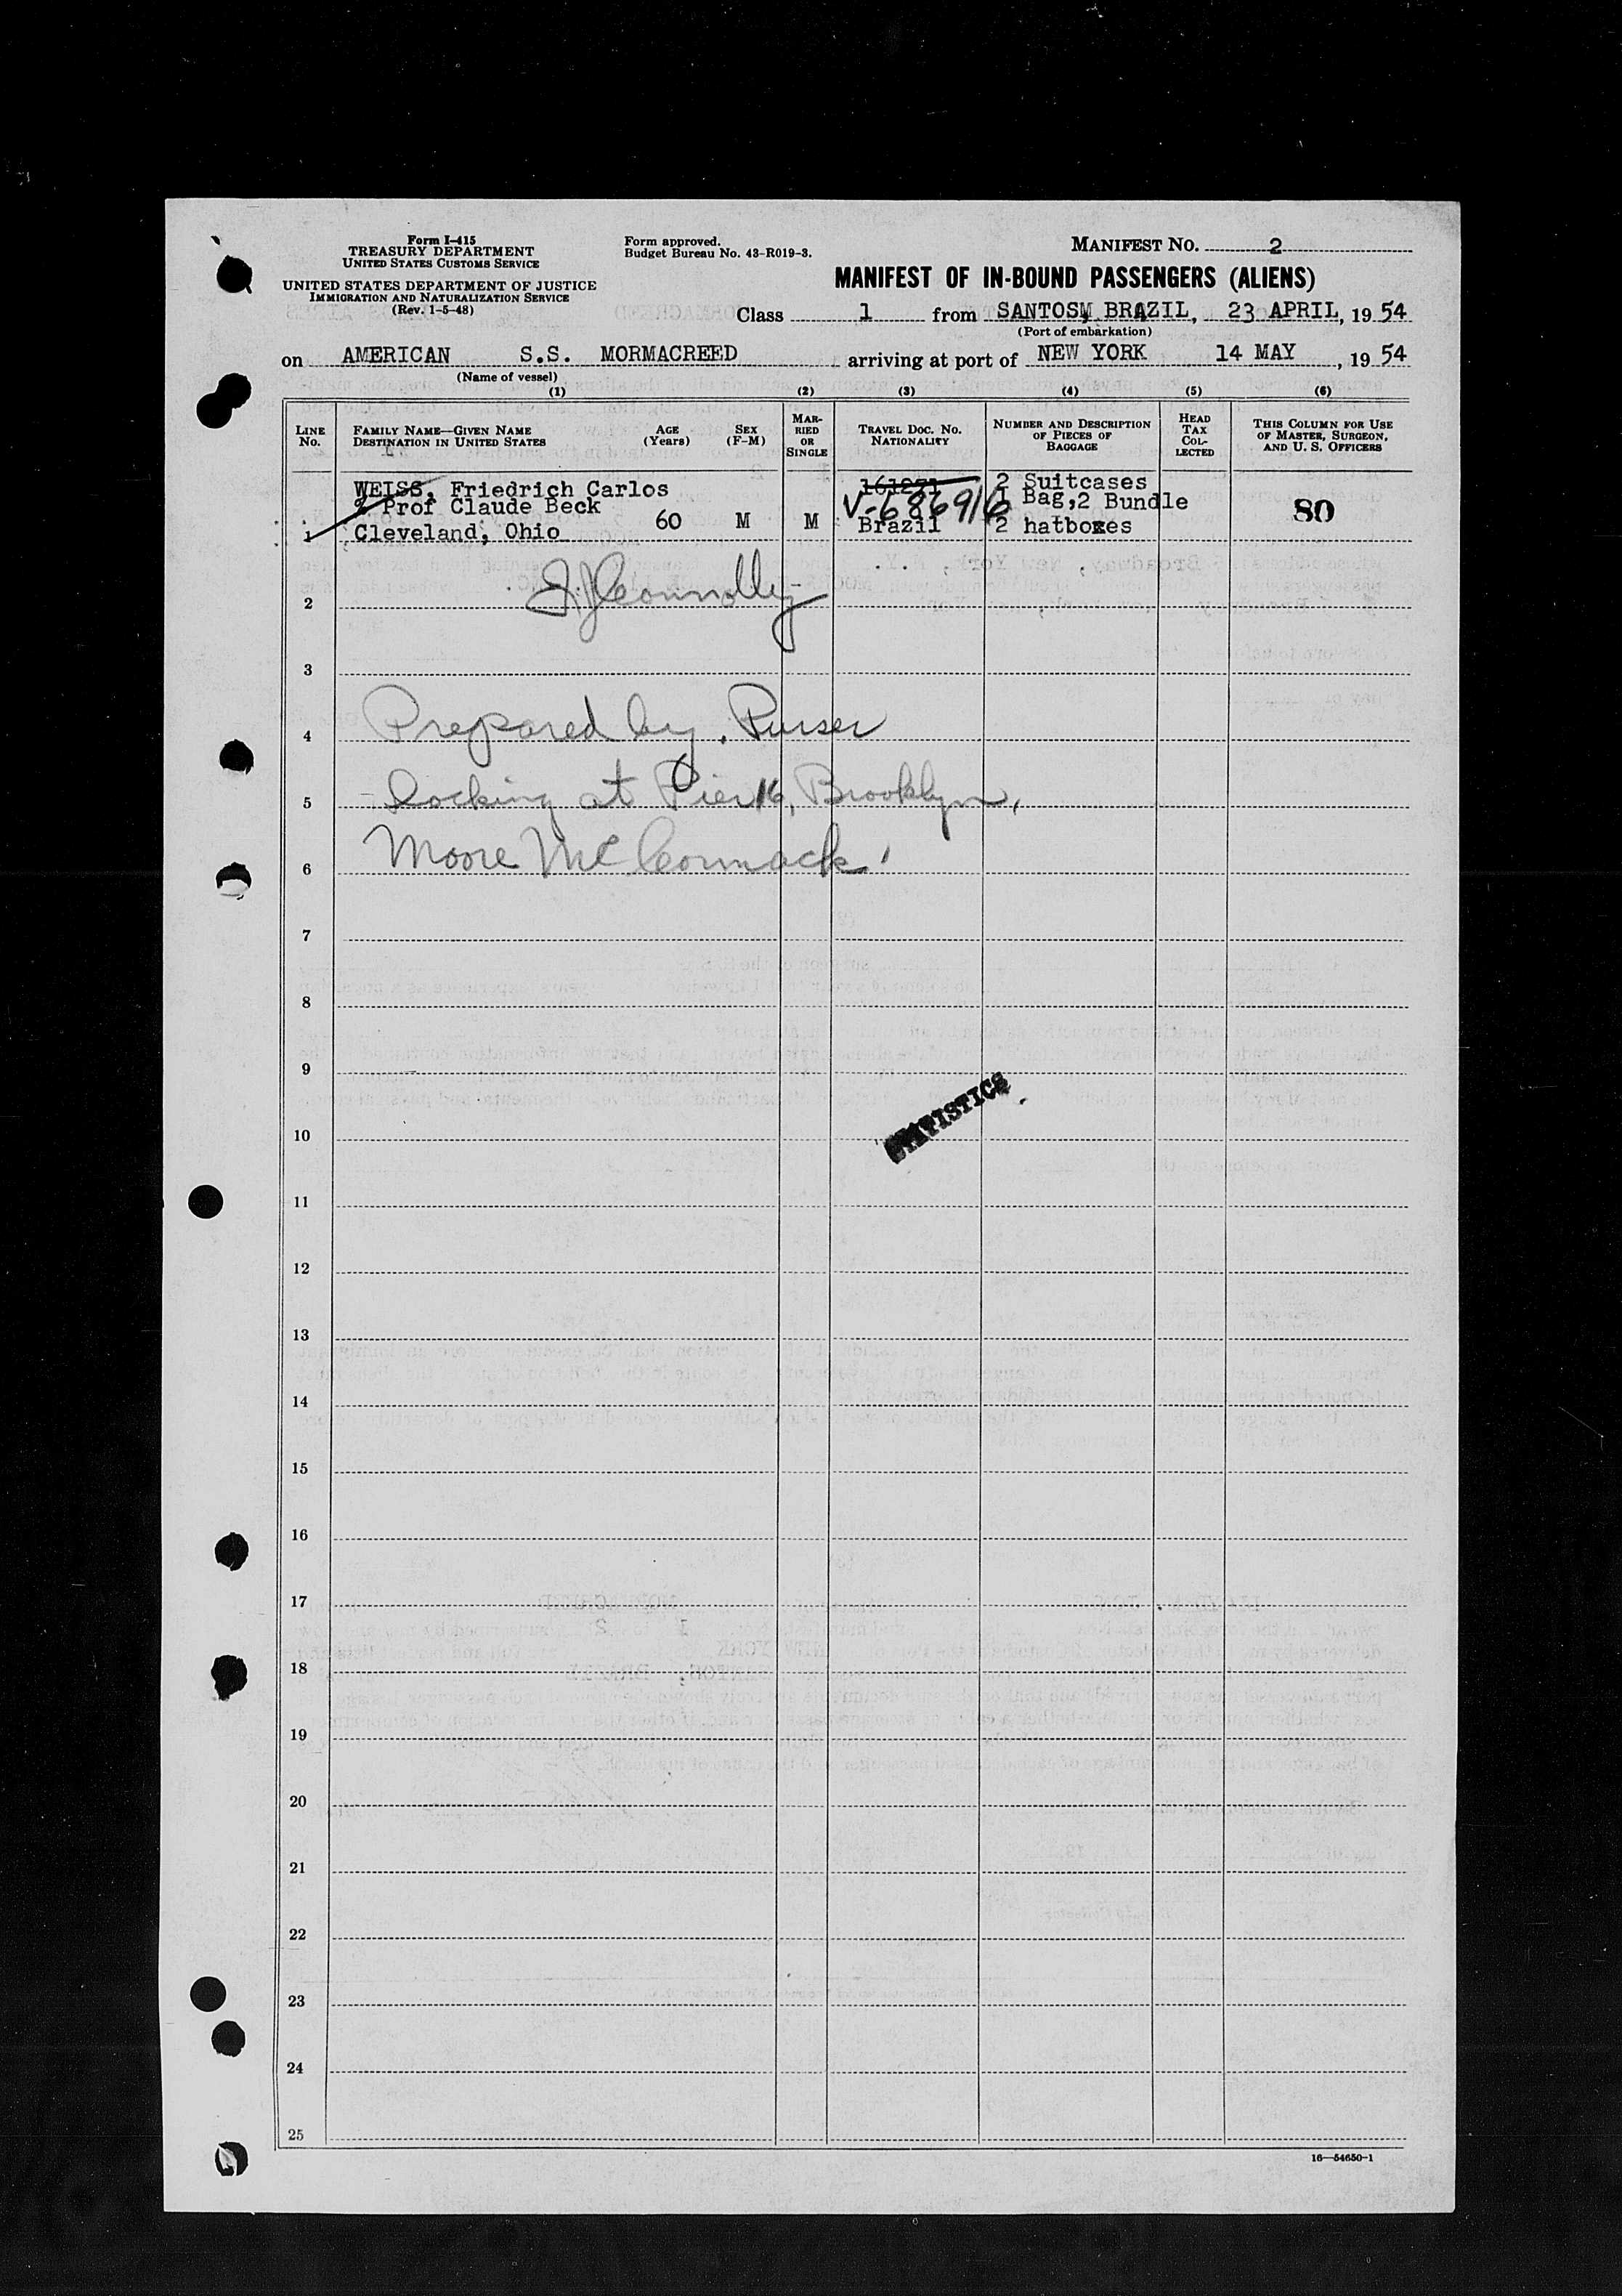 Form I-415
TREASURY DEPARTMENT
UNITED STATES CUSTOMS SERVICE
UNITED STATES DEPARTMENT OF JUSTICE
IMMIGRATION AND NATURALIZATION SERVICE
(Rev. 1-5-48)
Form approved.
Budget Bureau No. 43-R019-3.
MANIFEST NO. 2
MANIFEST OF IN-BOUND PASSENGERS (ALIENS)
Class 1 from SANTOS, BRAZIL, 23 APRIL, 1954
(Port of embarkation)
on AMERICAN S.S. MORMACREED arriving at port of NEW YORK 14 MAY, 1954
(Name of vessel)
(1) (2) (3) (4) (5) (6)
LINE No. FAMILY NAME—GIVEN NAME DESTINATION IN UNITED STATES AGE (Years) SEX (F-M) MARRIED OR SINGLE TRAVEL DOC. NO. NATIONALITY NUMBER AND DESCRIPTION OF PIECES OF BAGGAGE HEAD TAX COLLECTED THIS COLUMN FOR USE OF MASTER, SURGEON, AND U. S. OFFICERS
WEISS, Friedrich Carlos 2 Suitcases
% Prof Claude Beck V-686916 1 Bag,2 Bundle
1 Cleveland, Ohio 60 M M Brazil 2 hatboxes 80
J.J. Connolly
2
3
4 Prepared by Purser
5 Docking at Pier 16, Brooklyn,
6 Moore McCormack
7
8
9
STATISTICS
10
11
12
13
14
15
16
17
18
19
20
21
22
23
24
25
16—54650-1